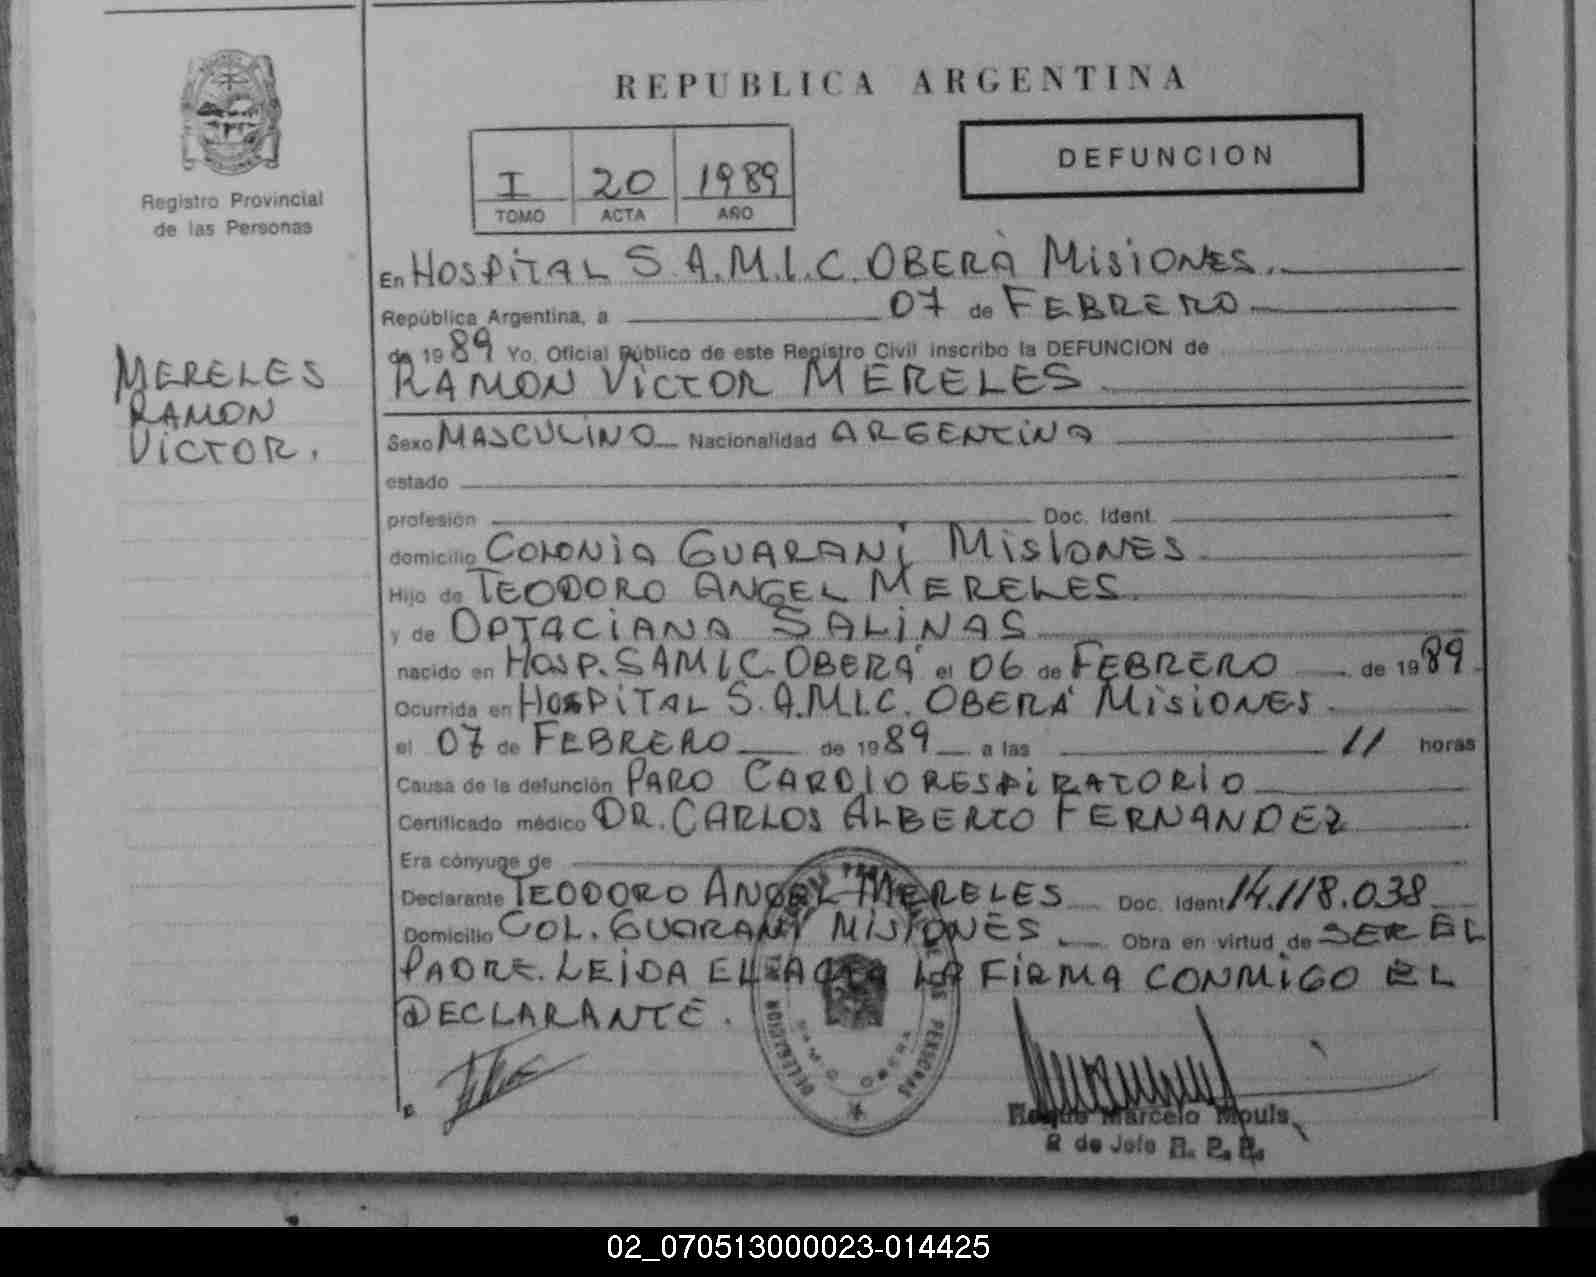 REPUBLICA ARGENTINA
Registro Provincial
de las Personas
I 20 1989
TOMO ACTA AÑO
DEFUNCION
MERELES
RAMON
VICTOR.
En HOSPITAL S.A.M.I.C. OBERÁ MISIONES.
República Argentina, a 07 de FEBRERO
de 1989 Yo, Oficial Público de este Registro Civil inscribo la DEFUNCION de
RAMON VICTOR MERELES
Sexo MASCULINO Nacionalidad ARGENTINA
estado
profesión Doc. Ident.
domicilio COLONIA GUARANÍ MISIONES
Hijo de TEODORO ANGEL MERELES.
y de OPTACIANA SALINAS
nacido en HOSP. SAMIC. OBERÁ el 06 de FEBRERO de 1989
Ocurrida en HOSPITAL S.A.M.I.C. OBERÁ MISIONES.
el 07 de FEBRERO de 1989 a las 11 horas
Causa de la defunción PARO CARDIORESPIRATORIO
Certificado médico DR. CARLOS ALBERTO FERNANDEZ
Era cónyuge de
Declarante TEODORO ANGEL MERELES Doc. Ident 14.118.038
Domicilio COL. GUARANÍ MISIONES Obra en virtud de SER EL
PADRE. LEIDA EL ACTA LA FIRMA CONMIGO EL
DECLARANTE.
DELEGACION
DE LAS PERSONAS
Marcelo Mouls
2 de Jefe R. P. P.
02_070513000023-014425